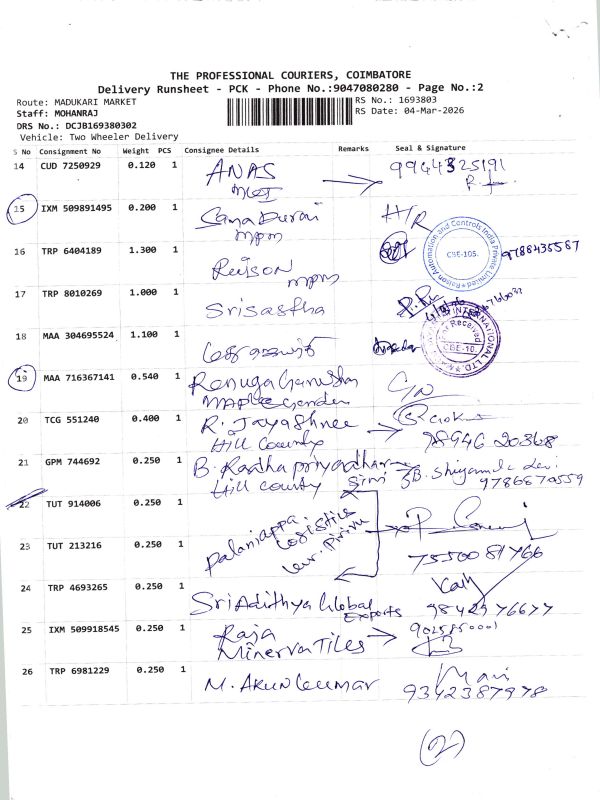 THE PROFESSIONAL COURIERS, COIMBATORE
Delivery Runsheet - PCK - Phone No.:9047080280 - Page No.:2
Route: MADUKARI MARKET
RS No.: 1693803
Staff: MOHANRAJ
RS Date: 04-Mar-2026
DRS No.: DCJB169380302
Vehicle: Two Wheeler Delivery
S No Consignment No Weight PCS Consignee Details Remarks Seal & Signature
14 CUD 7250929 0.120 1 ANAS 9944325191
15 IXM 509891495 0.200 1 H/R
mpm
16 TRP 6404189 1.300 1 9788435587
Rolson Automation and Controls India Private Limited
CBE-105.
mpm
17 TRP 8010269 1.000 1 Srisastha
18 MAA 304695524 1.100 1
INTERNATIONAL
Received
CBE-10.
19 MAA 716367141 0.540 1
20 TCG 551240 0.400 1 R. Jayashree
Hill County 78946 20368
21 GPM 744692 0.250 1 B. Radha priyadharsini B. Shiyamala devi
Hill county 9786570559
22 TUT 914006 0.250 1 Palaniappa
Logistics
23 TUT 213216 0.250 1 7550081766
24 TRP 4693265 0.250 1 Sri Adithya Global
Exports 9842976677
25 IXM 509918545 0.250 1 Raja
Minerva Tiles
26 TRP 6981229 0.250 1 M. Arun kumar Mani
9342387978
(2)